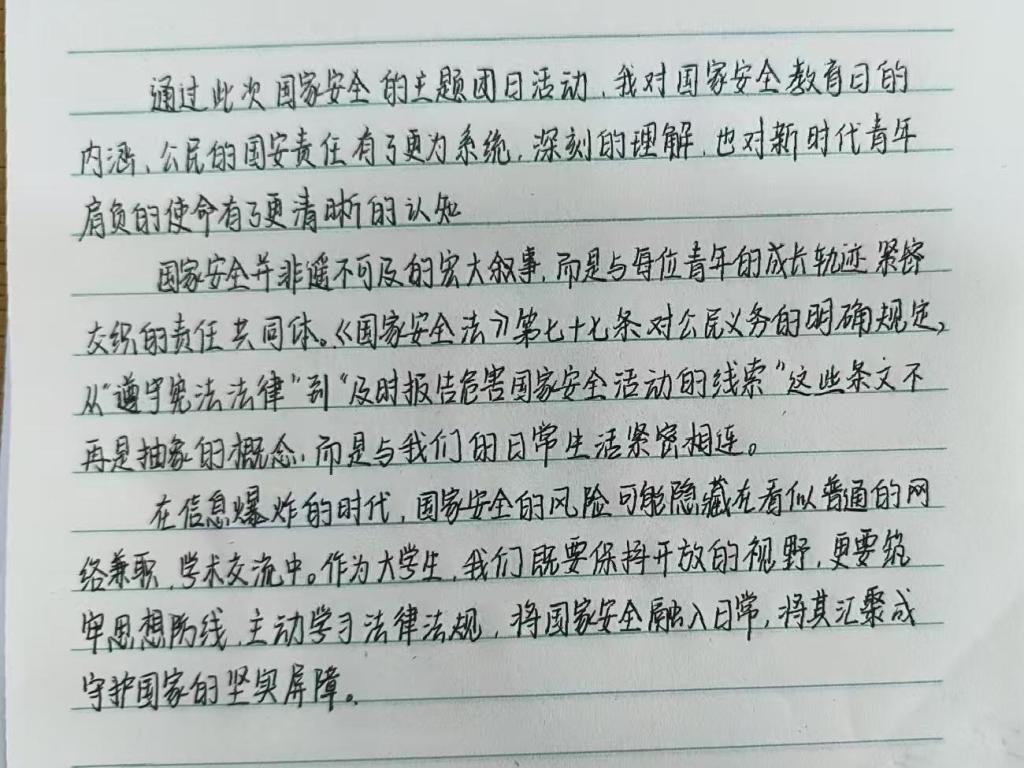 通过此次国家安全的主题团日活动，我对国家安全教育日的
内涵、公民的国安责任有了更为系统，深刻的理解，也对新时代青年
肩负的使命有了更清晰的认知
国家安全并非遥不可及的宏大叙事，而是与每位青年的成长轨迹紧密
交织的责任共同体。《国家安全法》第七十七条对公民义务的明确规定，
从“遵守宪法法律”到“及时报告危害国家安全活动的线索”这些条文不
再是抽象的概念，而是与我们的日常生活紧密相连。
在信息爆炸的时代，国家安全的风险可能隐藏在看似普通的网
络兼职，学术交流中。作为大学生，我们既要保持开放的视野，更要筑
牢思想防线，主动学习法律法规，将国家安全融入日常，将其汇聚成
守护国家的坚实屏障。